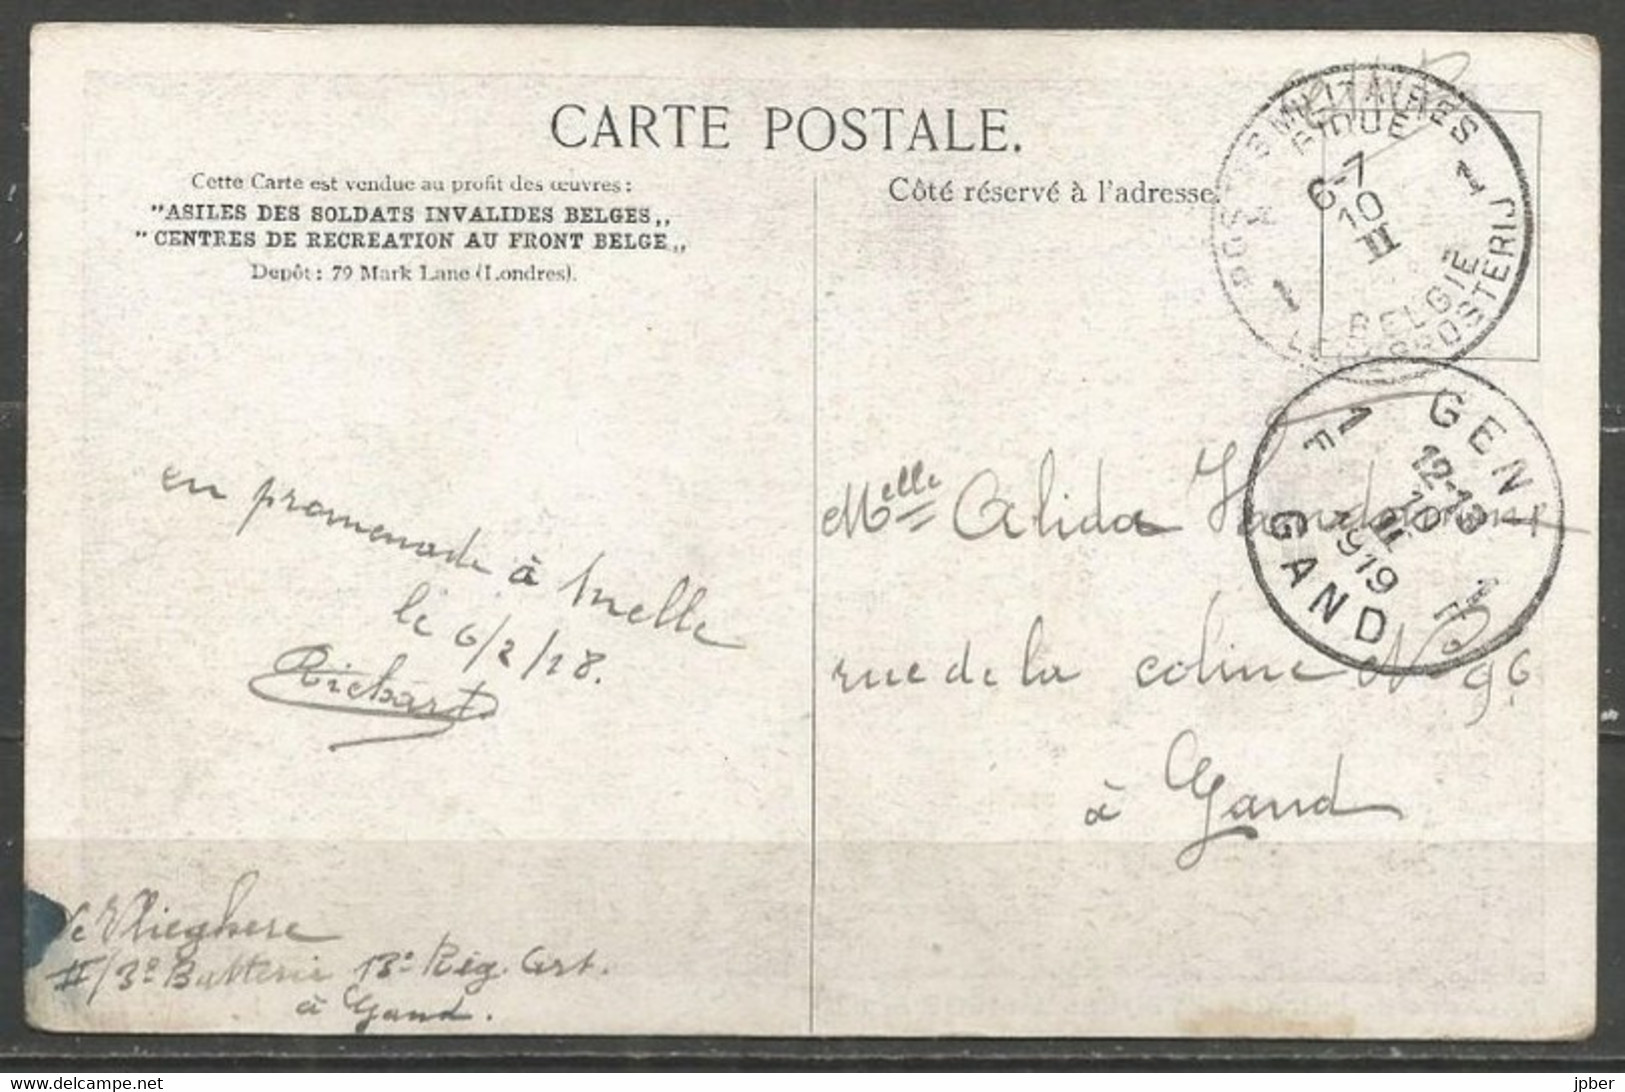 CARTE POSTALE.
Cette Carte est vendue au profit des œuvres:
"ASILES DES SOLDATS INVALIDES BELGES,,
"CENTRES DE RECREATION AU FRONT BELGE,,
Depôt: 79 Mark Lane (Londres).
Côté réservé à l'adresse.
POSTES MILITAIRES
BELGIQUE
1
6-7
10
II
1
BELGIË
LEGERPOSTERIJ
GENT
1
F
12-13
10
II
1919
1
F
GAND
en promenade à Melle
le 6/2/18.
Richart
Melle Alida
rue de la coline No 96
à Gand
De Vlieghere
II/3e Batterie 13e Rég. Art.
à Gand.
jpber